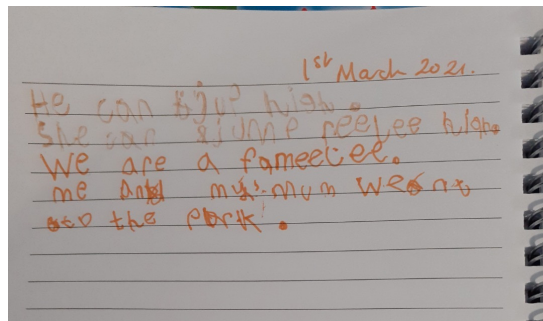 1st March 2021.
He can jup high.
She can jump reelee high.
We are a fameelee.
me and my mum went
to the park.